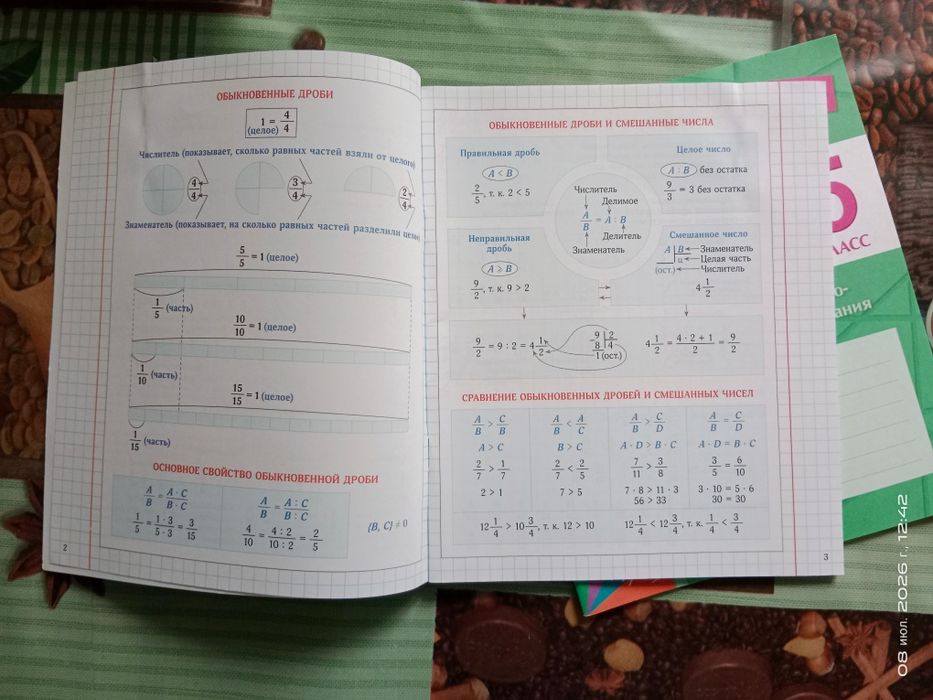 ОБЫКНОВЕННЫЕ ДРОБИ
1 = 4/4
(целое)
Числитель (показывает, сколько равных частей взяли от целого)
4/4 3/4 2/4
Знаменатель (показывает, на сколько равных частей разделили целое)
5/5 = 1 (целое)
1/5 (часть)
10/10 = 1 (целое)
1/10 (часть)
15/15 = 1 (целое)
1/15 (часть)
ОСНОВНОЕ СВОЙСТВО ОБЫКНОВЕННОЙ ДРОБИ
A/B = A · C/B · C
A/B = A : C/B : C
{B, C} ≠ 0
1/5 = 1 · 3/5 · 3 = 3/15
4/10 = 4 : 2/10 : 2 = 2/5
2
ОБЫКНОВЕННЫЕ ДРОБИ И СМЕШАННЫЕ ЧИСЛА
Правильная дробь
A < B
2/5, т. к. 2 < 5
Целое число
A : B без остатка
9/3 = 3 без остатка
Числитель
Делимое
A/B = A : B
Делитель
Знаменатель
Неправильная
дробь
A ⩾ B
9/2, т. к. 9 > 2
Смешанное число
A B Знаменатель
ц Целая часть
(ост.) Числитель
4 1/2
9/2 = 9 : 2 = 4 1/2
− 9 2
8 4
1 (ост.)
4 1/2 = 4 · 2 + 1/2 = 9/2
СРАВНЕНИЕ ОБЫКНОВЕННЫХ ДРОБЕЙ И СМЕШАННЫХ ЧИСЕЛ
A/B > C/B A/B < A/C A/B > C/D A/B = C/D
A > C B > C A · D > B · C A · D = B · C
2/7 > 1/7 2/7 < 2/5 7/11 > 3/8 3/5 = 6/10
2 > 1 7 > 5 7 · 8 > 11 · 3 3 · 10 = 5 · 6
56 > 33 30 = 30
12 1/4 > 10 3/4, т. к. 12 > 10 12 1/4 < 12 3/4, т. к. 1/4 < 3/4
3
5
ЛАСС
о-
ания
08 июл. 2026 г., 12:42